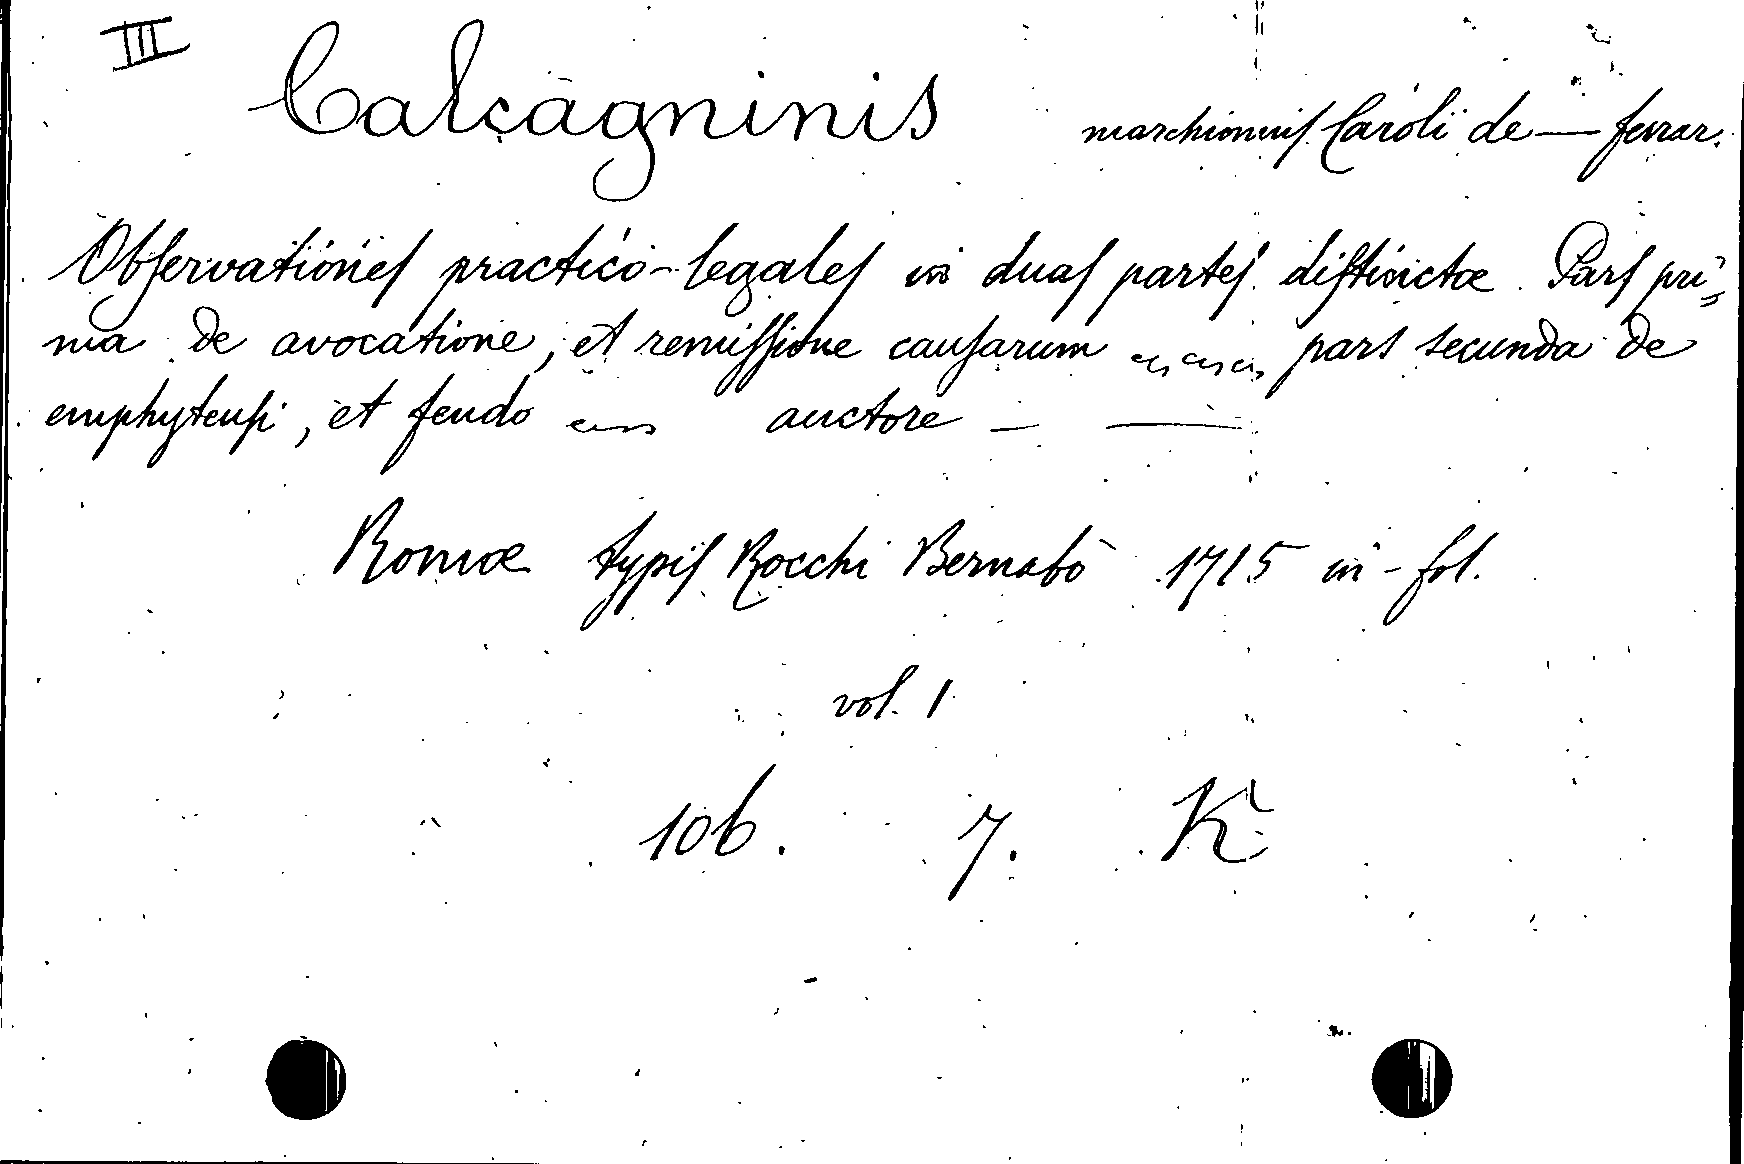 III
Calcagninis marchionis Caroli de — ferrar.
Observationes practico-legales in duas partes distinctæ. Pars pri=
ma de avocatione, et remissione causarum pars secunda de
emphyteusi, et feudo auctore — —
Romæ typis Rocchi Bernabò 1715 in-fol.
vol. 1
106. 7. K